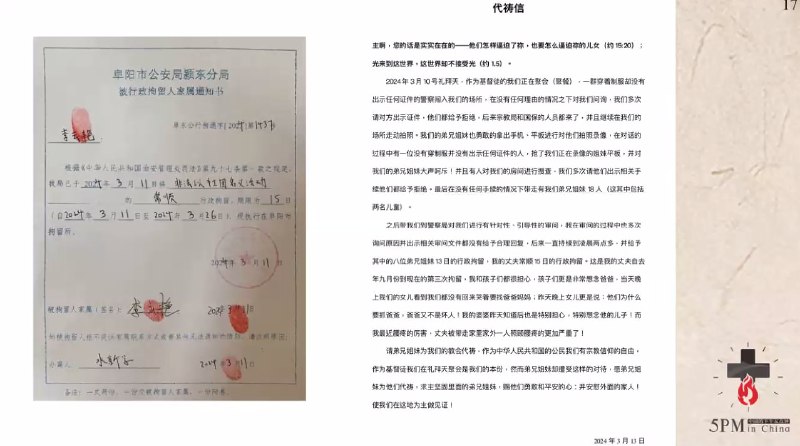 阜阳市公安局颍东分局
被行政拘留人家属通知书
阜东公行拘通字[2024]第1437号
李云艳
根据《中华人民共和国治安管理处罚法》第九十七条第一款之规定,
我局已于 2024 年 3 月 11 日将 非法以社团名义活动
的 常顺 行政拘留,期限为 15 日
(自2024年 3 月 11 日至 2024年 3 月 26 日),现执行在阜阳市
拘留所。
2024年 3 月 11 日
被拘留人家属(签名):
2024年 3 月 11 日
办案人:
2024年 3 月 11 日
代祷信
主啊,您的话是实实在在的——他们怎样逼迫了祢,也要怎么逼迫祢的儿女(约 15:20);
光来到这世界,这世界却不接受光(约 1.5)。
2024 年 3 月 10 号礼拜天,作为基督徒的我们正在聚会(聚餐),一群穿着制服却没有
出示任何证件的警察闯入我们的场所,在没有任何理由的情况之下对我们问询,我们多次
请对方出示证件,他们都给予拒绝。后来宗教局和国保的人员都来了,并且继续在我们的
场所走动拍照,我们的弟兄姐妹也勇敢的拿出手机、平板进行对他们拍照录像,在对话的
过程中有一位没有穿制服并没有出示任何证件的人,抢了我们正在录像的姐妹平板,并对
我们的弟兄姐妹大声呵斥!并且有人对我们的房间进行搜查,我们多次请他们出示相关手
续他们都给予拒绝。最后在没有任何手续的情况下带走有我们弟兄姐妹 18 人(这其中包括
两名儿童)。
之后带我们到警察局对我们进行有针对性、引导性的审问,我在审问的过程中也多次
询问原因并出示相关审问文件都没有给予合理回复,后来一直持续到凌晨两点多,并给予
其中的八位弟兄姐妹 13 日的行政拘留,我的丈夫常顺 15 日的行政拘留。这是我的丈夫自去
年九月份到现在的第三次拘留,我和孩子们都很担心,孩子们更是非常想念爸爸,当天晚
上我们的女儿看到我们都没有回来哭着要找爸爸妈妈;昨天晚上女儿更是说:他们为什么
要抓爸爸,爸爸又不是坏人!我的婆婆昨天知道后也是特别担心,特别想念他的儿子!而
我最近腰疼的厉害,丈夫被带走家里家外一人照顾腰疼的更加严重了!
请弟兄姐妹为我们的教会代祷,作为中华人民共和国的公民我们有宗教信仰的自由,
作为基督徒我们在礼拜天聚会是我们的本份,然而弟兄姐妹却遭受这样的对待,愿弟兄姐
妹为他们代祷,求主坚固里面的弟兄姐妹,赐他们勇敢和平安的心;并安慰外面的家人!
使我们在这地为主做见证!
2024 年 3 月 13 日
17
5PM
in China